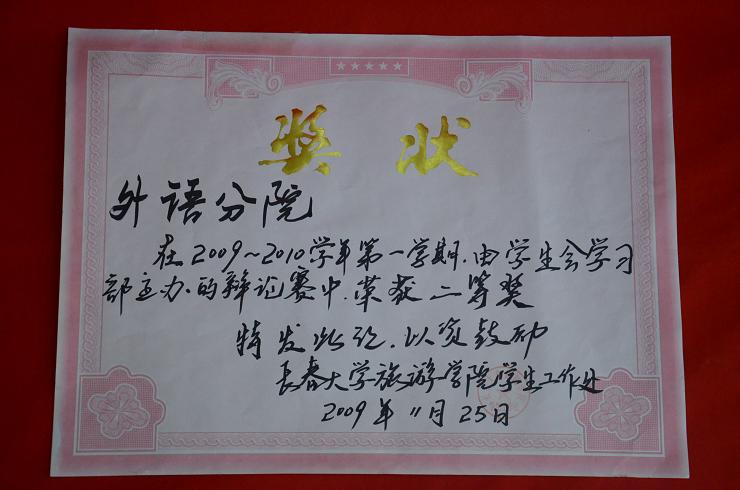 奖状
外语分院
在2009~2010学年第一学期,由学生会学习
部主办的辩论赛中,荣获二等奖
特发此证,以资鼓励
长春大学旅游学院学生工作处
2009年11月25日